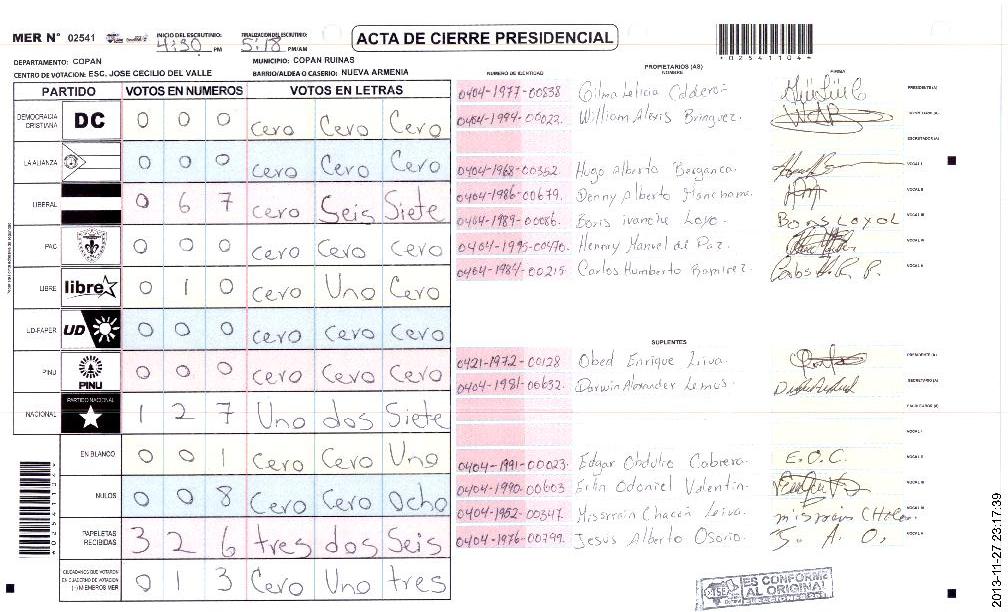 MER N° 02541
INICIO DEL ESCRUTINIO: 4:30 PM
FINALIZACION DEL ESCRUTINIO: 5:18 PM/AM
ACTA DE CIERRE PRESIDENCIAL
*025411044*
DEPARTAMENTO: COPAN
MUNICIPIO: COPAN RUINAS
CENTRO DE VOTACION: ESC. JOSE CECILIO DEL VALLE
BARRIO/ALDEA O CASERIO: NUEVA ARMENIA
PARTIDO VOTOS EN NUMEROS VOTOS EN LETRAS
DEMOCRACIA CRISTIANA DC 0 0 0 Cero Cero Cero
LA ALIANZA 0 0 0 Cero Cero Cero
LIBERAL 0 6 7 Cero Seis Siete
PAC 0 0 0 Cero Cero Cero
LIBRE libre 0 1 0 Cero Uno Cero
UD-FAPER UD 0 0 0 Cero Cero Cero
PINU PINU 0 0 0 Cero Cero Cero
NACIONAL PARTIDO NACIONAL 1 2 7 Uno dos Siete
EN BLANCO 0 0 1 Cero Cero Uno
NULOS 0 0 8 Cero Cero Ocho
PAPELETAS RECIBIDAS 3 2 6 tres dos Seis
CIUDADANOS QUE VOTARON EN CUADERNO DE VOTACION (-) MIEMBROS MER 0 1 3 Cero Uno tres
PROPIETARIOS (AS)
NUMERO DE IDENTIDAD NOMBRE FIRMA
0404-1977-00838 Gilma Leticia Calderon PRESIDENTE (A)
0404-1994-00022. William Alexis Bringuez. SECRETARIO (A)
ESCRUTADOR (A)
0404-1968-00352. Hugo Alberto VOCAL I
0404-1986-00679. Denny Alberto VOCAL II
0404-1989-00086. Boris VOCAL III
0404-1995-00470. Henrry Manuel de Paz. VOCAL IV
0404-1984-00215 Carlos Humberto Ramirez. VOCAL V
SUPLENTES
0421-1972-00128 Obed Enrique Leiva. PRESIDENTE (A)
0404-1981-00632. Darwin Alexander Lemus. SECRETARIO (A)
ESCRUTADOR (A)
VOCAL I
0404-1991-00023. Edgar Obdulio Cabrera. E.O.C. VOCAL II
0404-1990-00603 Odoniel Valentin. VOCAL III
0404-1952-00347. Chacón Leiva. VOCAL IV
0404-1976-00799. Jesus Alberto Osorio. J. A. O. VOCAL V
TSE ES CONFORME AL ORIGINAL
2013-11-27 23:17:39